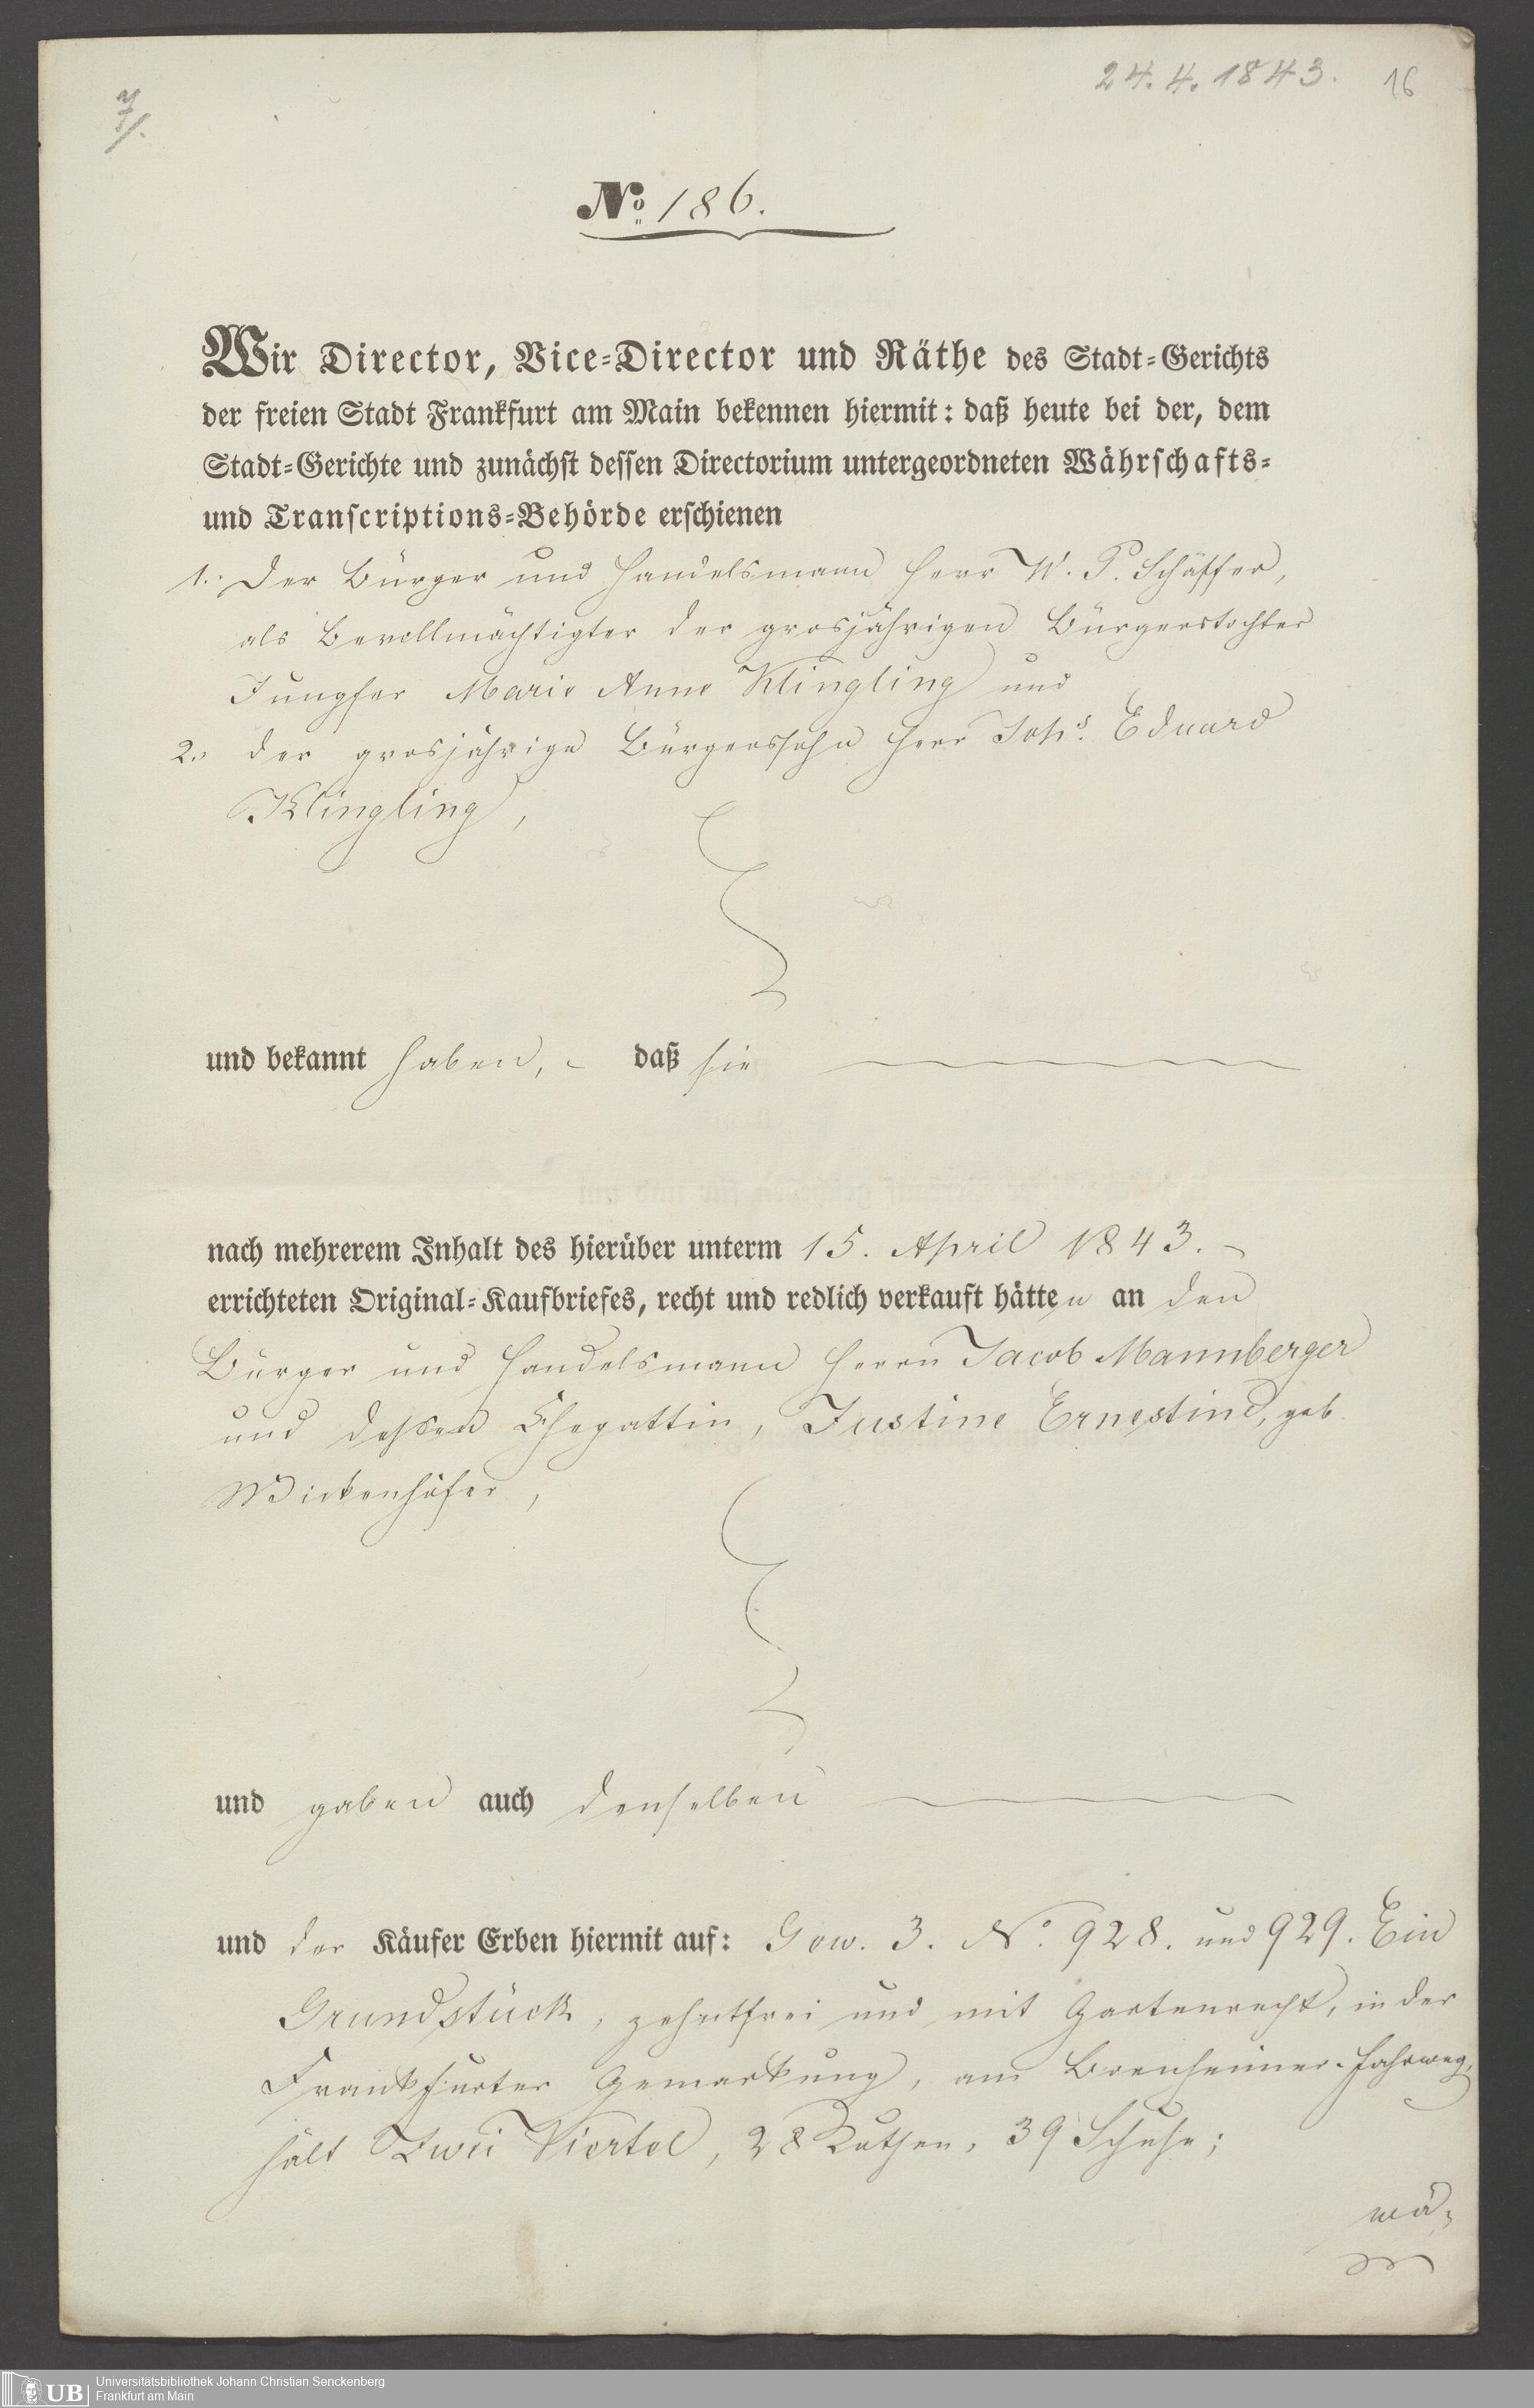 24. 4. 1843. 16
7/.
No. 186.
Wir Director, Vice-Director und Räthe des Stadt-Gerichts
der freien Stadt Frankfurt am Main bekennen hiermit: daß heute bei der, dem
Stadt-Gerichte und zunächst dessen Directorium untergeordneten Währschafts-
und Transcriptions-Behörde erschienen
1. Der Bürger und Handelsmann Herr W. P. Schäffer,
als Bevollmächtigter der grosjährigen Bürgerstochter
Jungfer Marie Anne Klingling und
2. der grosjährige Bürgerssohn Herr Johs. Eduard
Klingling,
und bekannt haben, daß sie
nach mehrerem Inhalt des hierüber unterm 15. April 1843.
errichteten Original-Kaufbriefes, recht und redlich verkauft hätten an den
Bürger und Handelsmann Herrn Jacob Mannberger
und dessen Ehegattin, Justine Ernestine, geb.
Wickenhöfer,
und gaben auch denselben
und der Käufer Erben hiermit auf: Gew. 3. No. 928. und 929. Ein
Grundstück, zehntfrei und mit Gartenrecht, in der
Frankfurter Gemarkung, am Bornheimer-Fahrweg,
hält Zwei Viertel, 28 Ruthen, 39 Schuhe;
wä-
UB Universitätsbibliothek Johann Christian Senckenberg
Frankfurt am Main